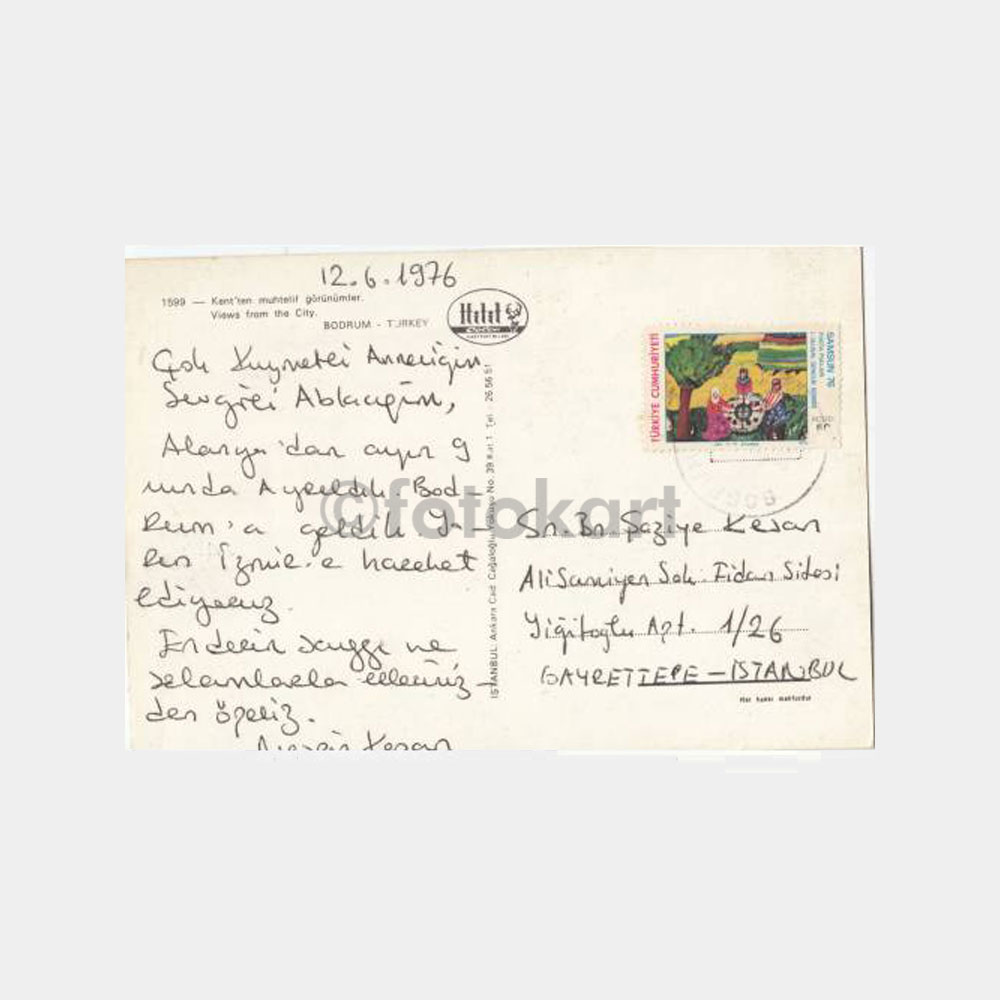 12.6.1976
1599 — Kent'ten muhtelif görünümler.
Views from the City.
BODRUM - TURKEY
Hitit
Çok Kıymetli Anneciğim
Sevgili Ablacığım,
Alanya'dan ayın 9
unda Ayrıldık. Bod-
rum'a geldik
İzmir'e hareket
ediyoruz.
En derin saygı ve
selamlarla elleriniz-
den öperiz.
Kesan
İSTANBUL: Ankara Cad. Cağaloğlu Yokuşu No. 39 Kat 1 Tel: 26 56 51
TÜRKİYE CUMHURİYETİ
SAMSUN 76
©fotokart
Sn. Bn. Şaziye Kesan
Ali Samiyen Sok. Fidan Sitesi
Yiğitoğlu Apt. 1/26
GAYRETTEPE – İSTANBUL
Her hakkı mahfuzdur